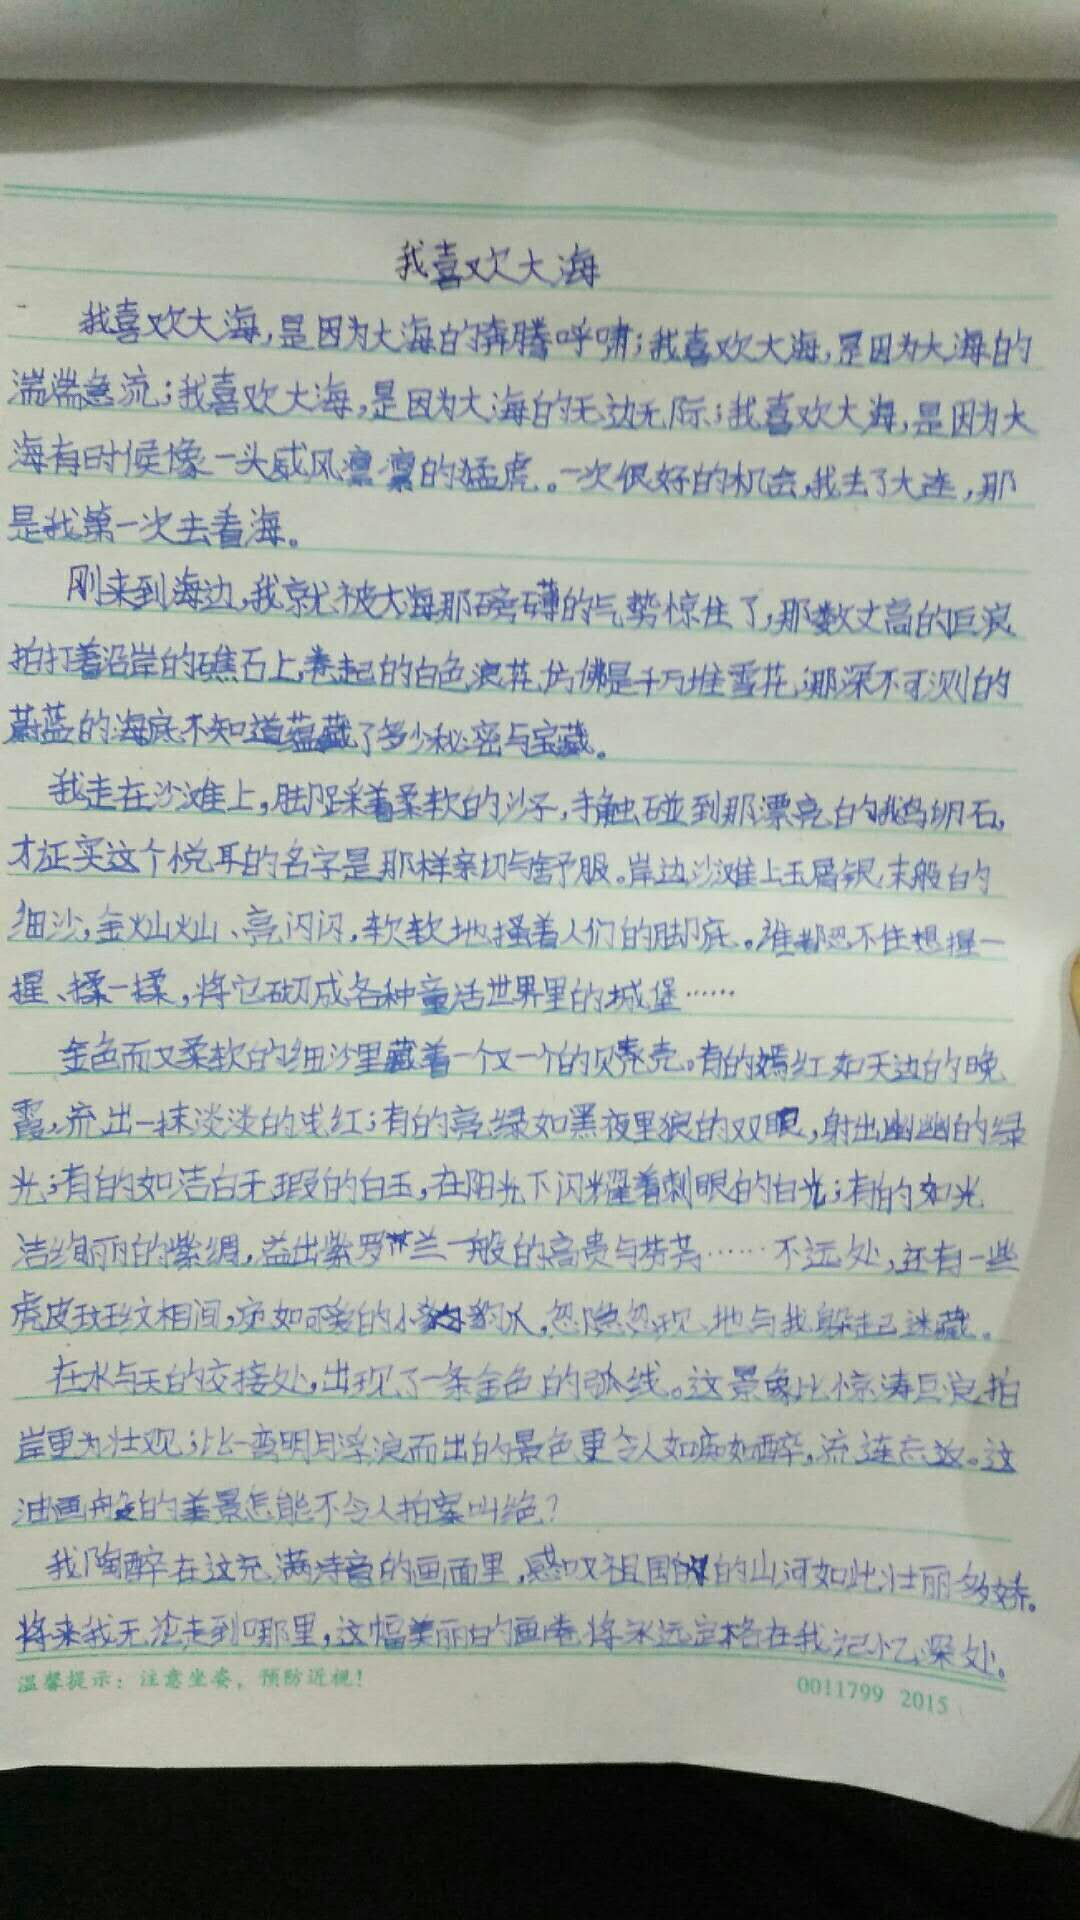 我喜欢大海
我喜欢大海,是因为大海的奔腾呼啸;我喜欢大海,是因为大海的
湍湍急流;我喜欢大海,是因为大海的无边无际;我喜欢大海,是因为大
海有时候像一头威风凛凛的猛虎。一次很好的机会,我去了大连,那
是我第一次去看海。
刚来到海边,我就被大海那磅礴的气势惊住了,那数丈高的巨浪
拍打着沿岸的礁石上,卷起的白色浪花,仿佛是千万堆雪花,那深不可测的
蔚蓝的海底不知道蕴藏了多少秘密与宝藏。
我走在沙滩上,脚踩着柔软的沙子,触碰到那漂亮的鹅卵石,
才证实这个悦耳的名字是那样亲切与舒服。岸边沙滩上玉屑银末般的
细沙,金灿灿、亮闪闪,软软地搔着人们的脚底。谁都忍不住想握一
握、揉一揉,将它砌成各种童话世界里的城堡……
金色而又柔软的细沙里藏着一个又一个的贝壳。有的嫣红如天边的晚
霞,流出一抹淡淡的浅红;有的亮绿如黑夜里狼的双眼,射出幽幽的绿
光;有的如洁白无瑕的白玉,在阳光下闪耀着刺眼的白光;有的如光
洁绚丽的紫绸,溢出紫罗兰一般的高贵与芬芳……不远处,还有一些
虎皮斑纹相间,宛如可爱的小豹,忽隐忽现地与我躲起迷藏。
在水与天的交接处,出现了一条金色的弧线。这景象比惊涛巨浪拍
岸更为壮观;比一弯明月浮浪而出的景色更令人如痴如醉,流连忘返。这
油画般的美景怎能不令人拍案叫绝?
我陶醉在这充满诗意的画面里,感叹祖国的山河如此壮丽多娇。
将来我无论走到哪里,这幅美丽的画卷将永远定格在我记忆深处。
温馨提示:注意坐姿,预防近视!
0011799 2015